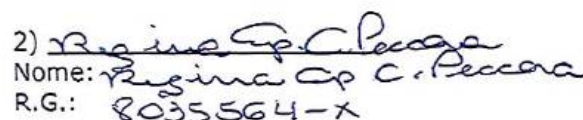 2) Regina Ap. C. Pecora
Nome: Regina Ap C. Peccora
R.G.: 8035564-X